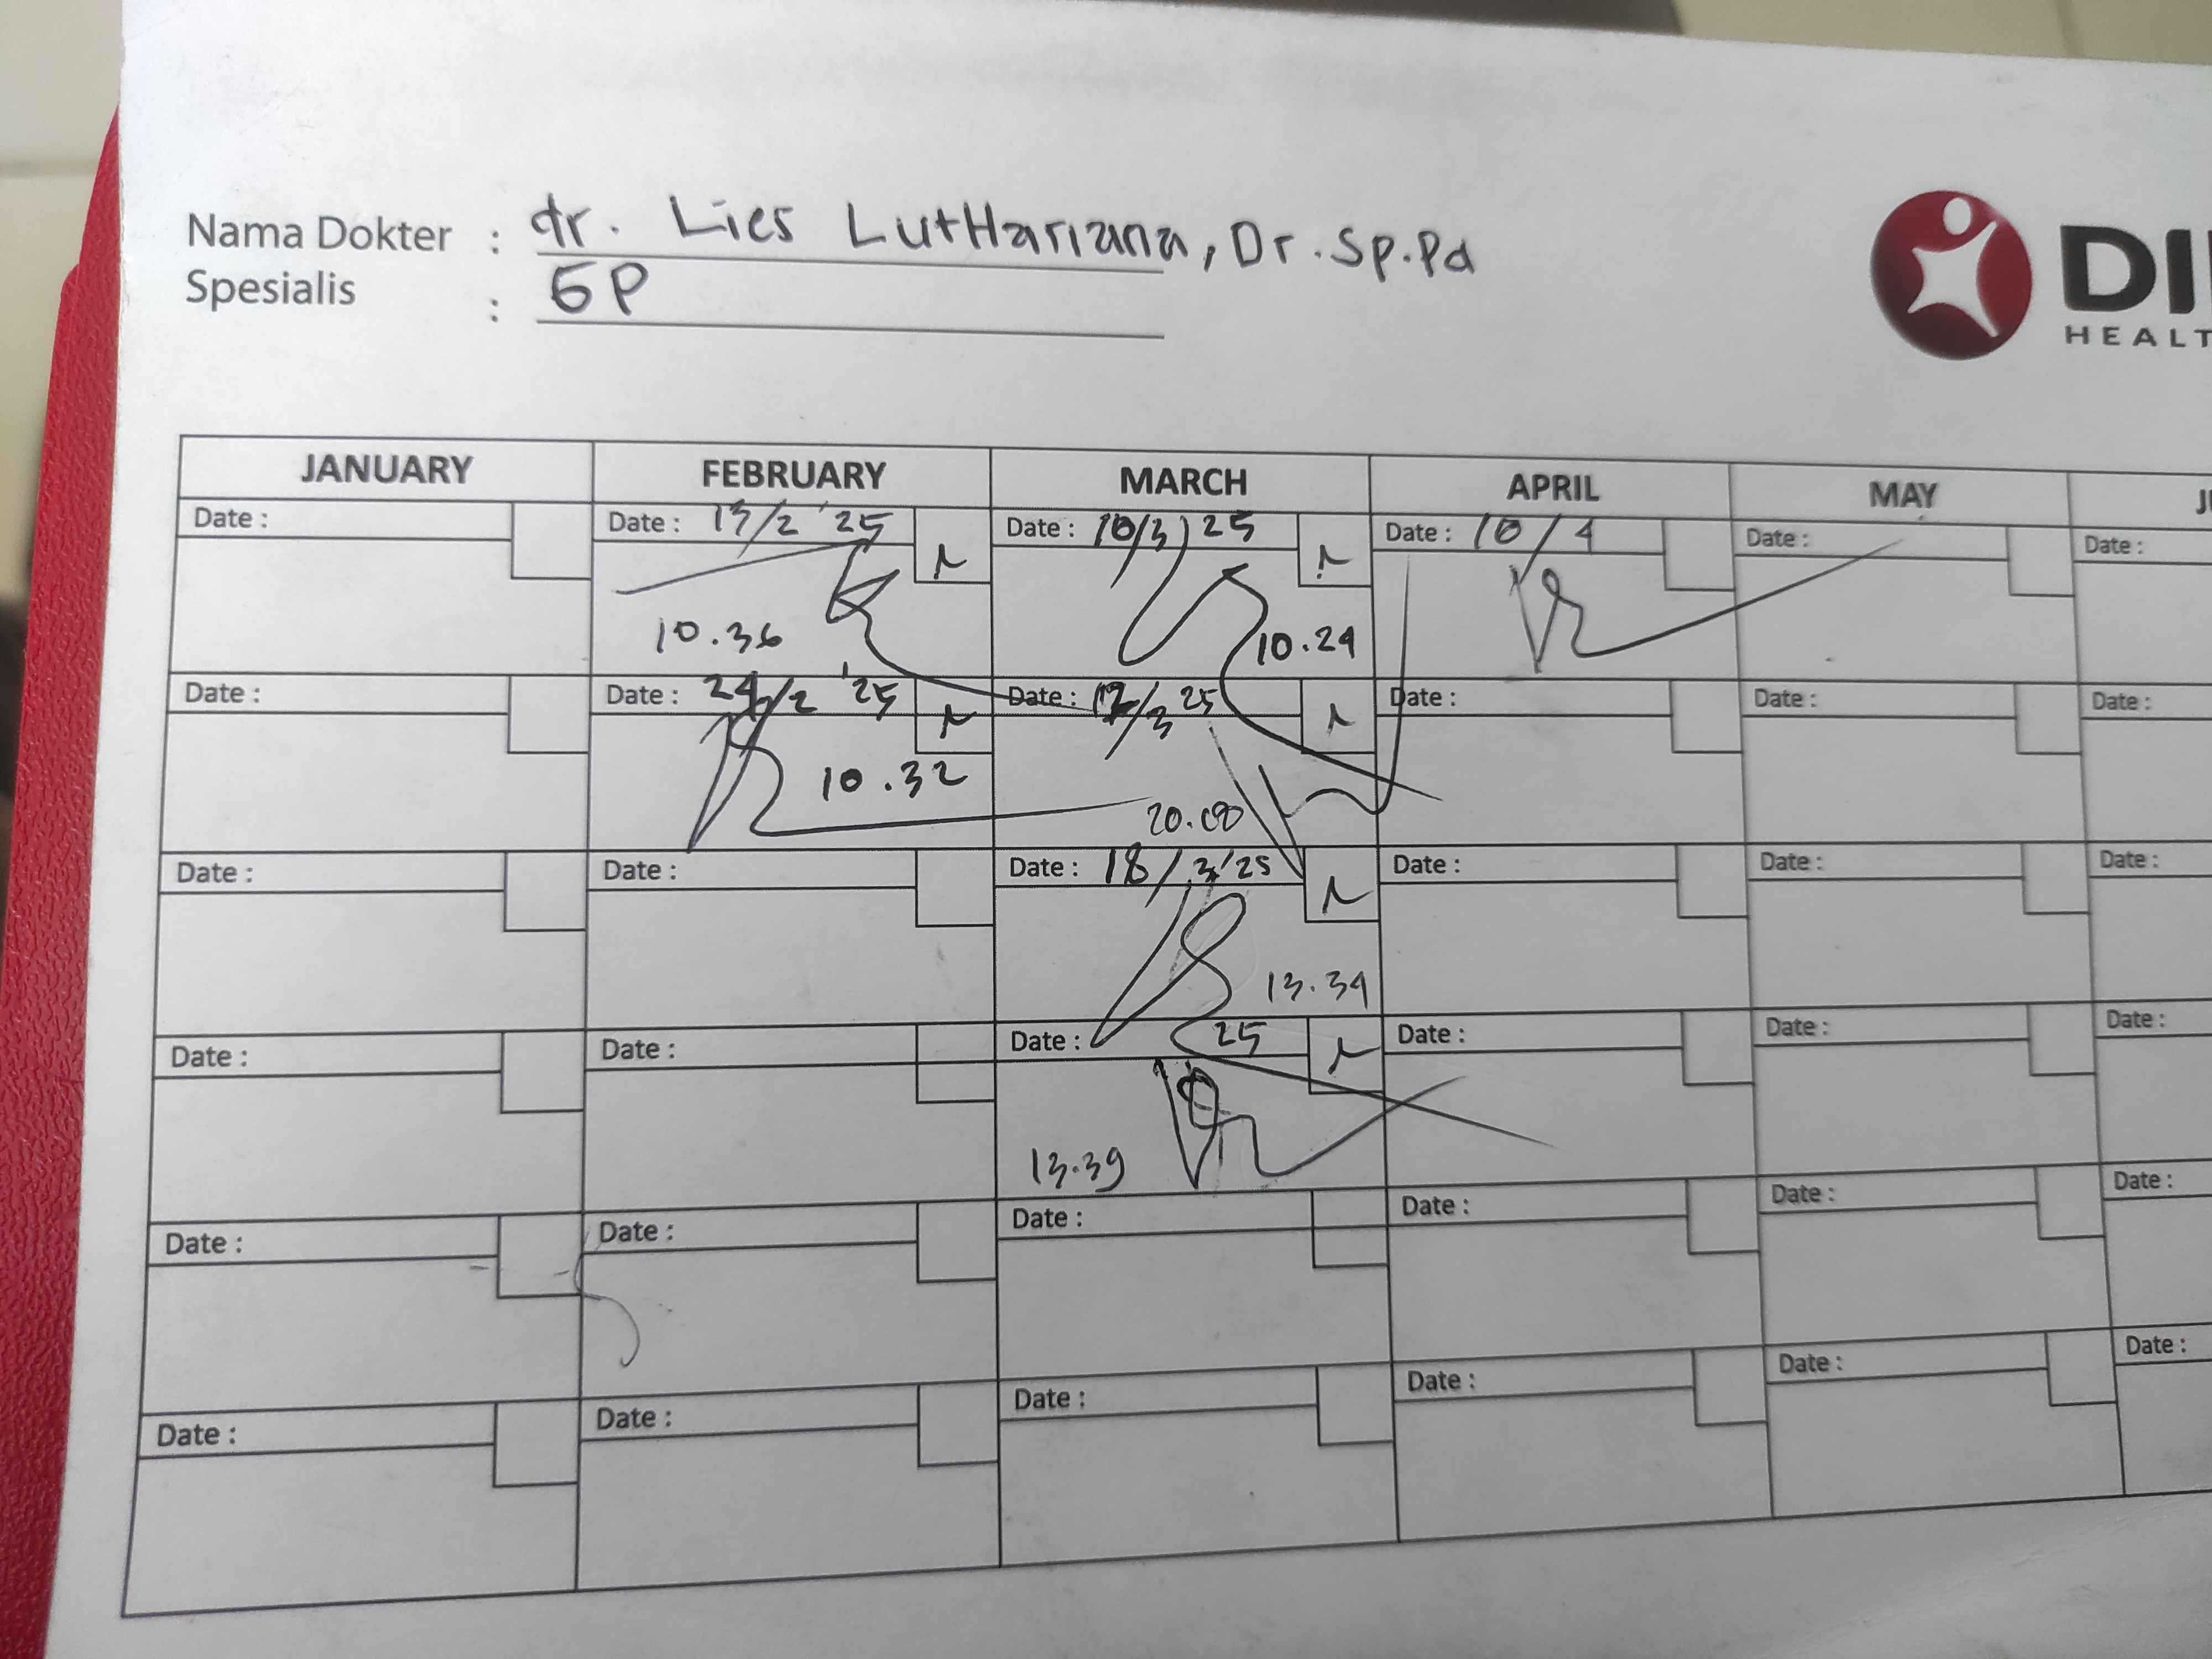 Nama Dokter : dr. Lies LutHariana, Dr. Sp.Pd
Spesialis : GP
DI
HEALT
JANUARY FEBRUARY MARCH APRIL MAY JU
Date : Date : 17/2 '25 Date : 10/3 25 Date : 10/4 Date : Date :
10.36 10.24
Date : Date : 24/2 '25 Date : 17/3 25 Date : Date : Date :
10.32 20.00
Date : Date : Date : 18/3/25 Date : Date : Date :
13.34
Date : Date : Date : 25 Date : Date : Date :
13.39
Date : Date : Date : Date : Date : Date :
Date : Date : Date : Date : Date : Date :